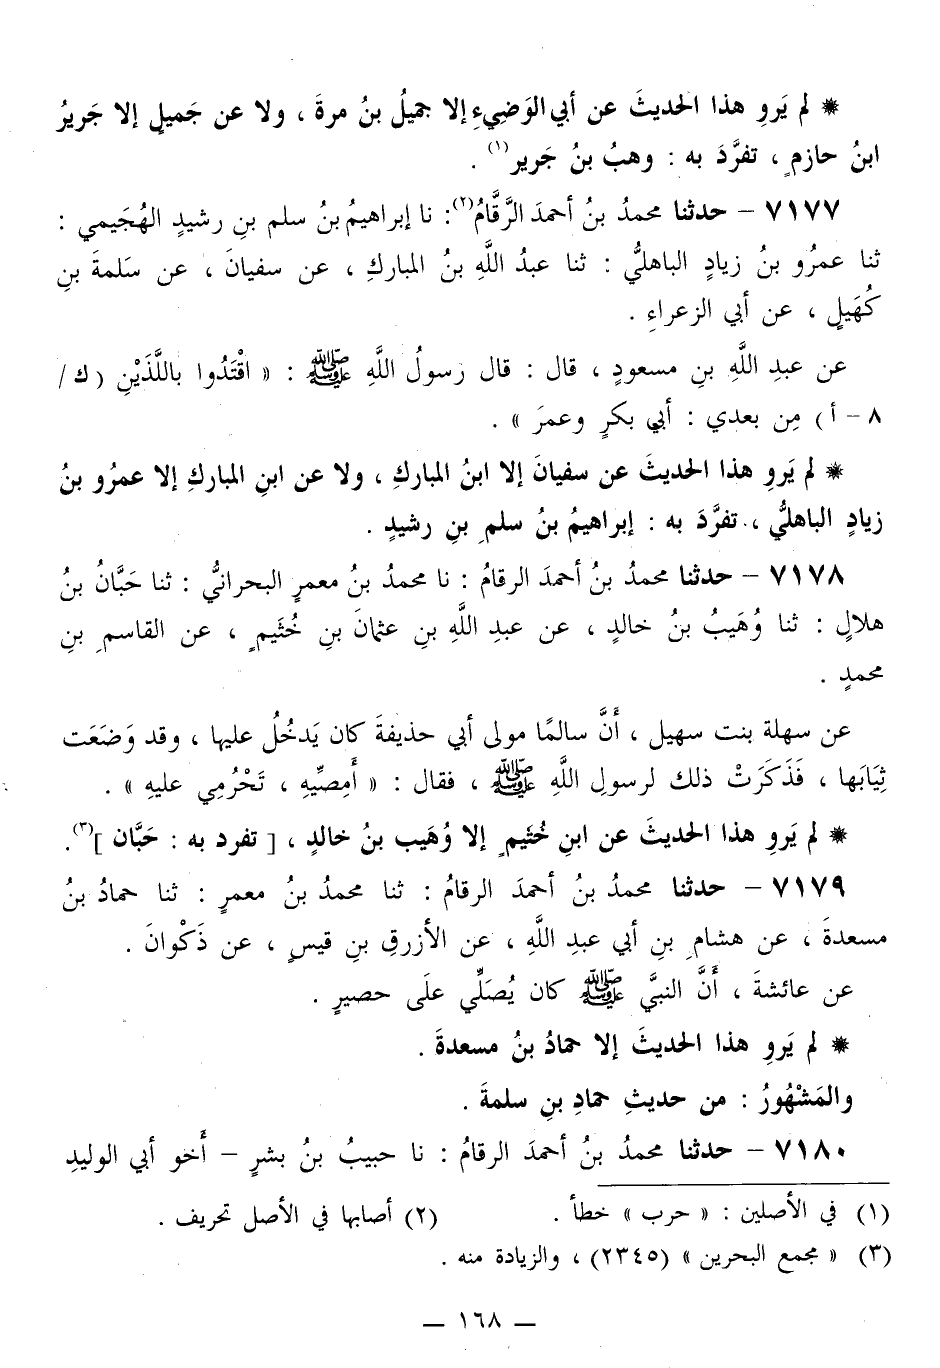 * لم يَروِ هذا الحديثَ عن أبي الوَضِيءِ إلا جميلُ بنُ مرةَ ، ولا عن جَميلٍ إلا جَريرُ
ابنُ حازمٍ ، تفرَّدَ به : وهبُ بنُ جَرير(١) .
٧١٧٧ – حدثنا محمدُ بنُ أحمدَ الرَّقَّامُ(٢): نا إبراهيمُ بنُ سلم بنِ رشيدٍ الهُجَيمي :
ثنا عمرُو بنُ زيادٍ الباهليُّ : ثنا عبدُ اللَّهِ بنُ المباركِ ، عن سفيانَ ، عن سَلمةَ بنِ
كُهَيلٍ ، عن أبي الزعراءِ .
عن عبدِ اللَّهِ بنِ مسعودٍ ، قال : قال رسولُ اللَّهِ ﷺ : « اقْتَدُوا باللَّذَيْنِ (ك/
٨ – أ) مِن بعدي : أبي بكرٍ وعمرَ » .
* لم يَروِ هذا الحديثَ عن سفيانَ إلا ابنُ المباركِ ، ولا عن ابنِ المباركِ إلا عمرُو بنُ
زيادٍ الباهليُّ ، تفرَّدَ به : إبراهيمُ بنُ سلمِ بنِ رشيدٍ .
٧١٧٨ – حدثنا محمدُ بنُ أحمدَ الرقامُ : نا محمدُ بنُ معمرٍ البحرانيُّ : ثنا حَبَّانُ بنُ
هلالٍ : ثنا وُهَيبُ بنُ خالدٍ ، عن عبدِ اللَّهِ بنِ عثمانَ بنِ خُثَيمٍ ، عن القاسمِ بنِ
محمدٍ .
عن سهلة بنت سهيل ، أَنَّ سالمًا مولى أبي حذيفةَ كان يَدخُلُ عليها ، وقد وَضَعَت
ثِيَابَها ، فَذَكَرَتْ ذلك لرسولِ اللَّهِ ﷺ ، فقال : « أَمِصِّيهِ ، تَحْرُمِي عليهِ » .
* لم يَروِ هذا الحديثَ عن ابنِ خُثَيمٍ إلا وُهَيب بنُ خالدٍ ، [ تفرد به : حَبَّان ](٣).
٧١٧٩ – حدثنا محمدُ بنُ أحمدَ الرقامُ : ثنا محمدُ بنُ معمرٍ : ثنا حمادُ بنُ
مسعدةَ ، عن هشامِ بنِ أبي عبدِ اللَّهِ ، عن الأزرقِ بنِ قيسٍ ، عن ذَكْوانَ .
عن عائشةَ ، أَنَّ النبيَّ ﷺ كان يُصَلِّي علَى حصيرٍ .
* لم يَروِ هذا الحديثَ إلا حمادُ بنُ مسعدةَ .
والمَشْهُورُ : من حديثِ حمادِ بنِ سلمةَ .
٧١٨٠ – حدثنا محمدُ بنُ أحمدَ الرقامُ : نا حبيبُ بنُ بشرٍ – أَخو أبي الوليدِ
(١) في الأصلين : « حرب » خطأ . (٢) أصابها في الأصل تحريف .
(٣) « مجمع البحرين » (٢٣٤٥) ، والزيادة منه .
– ١٦٨ –